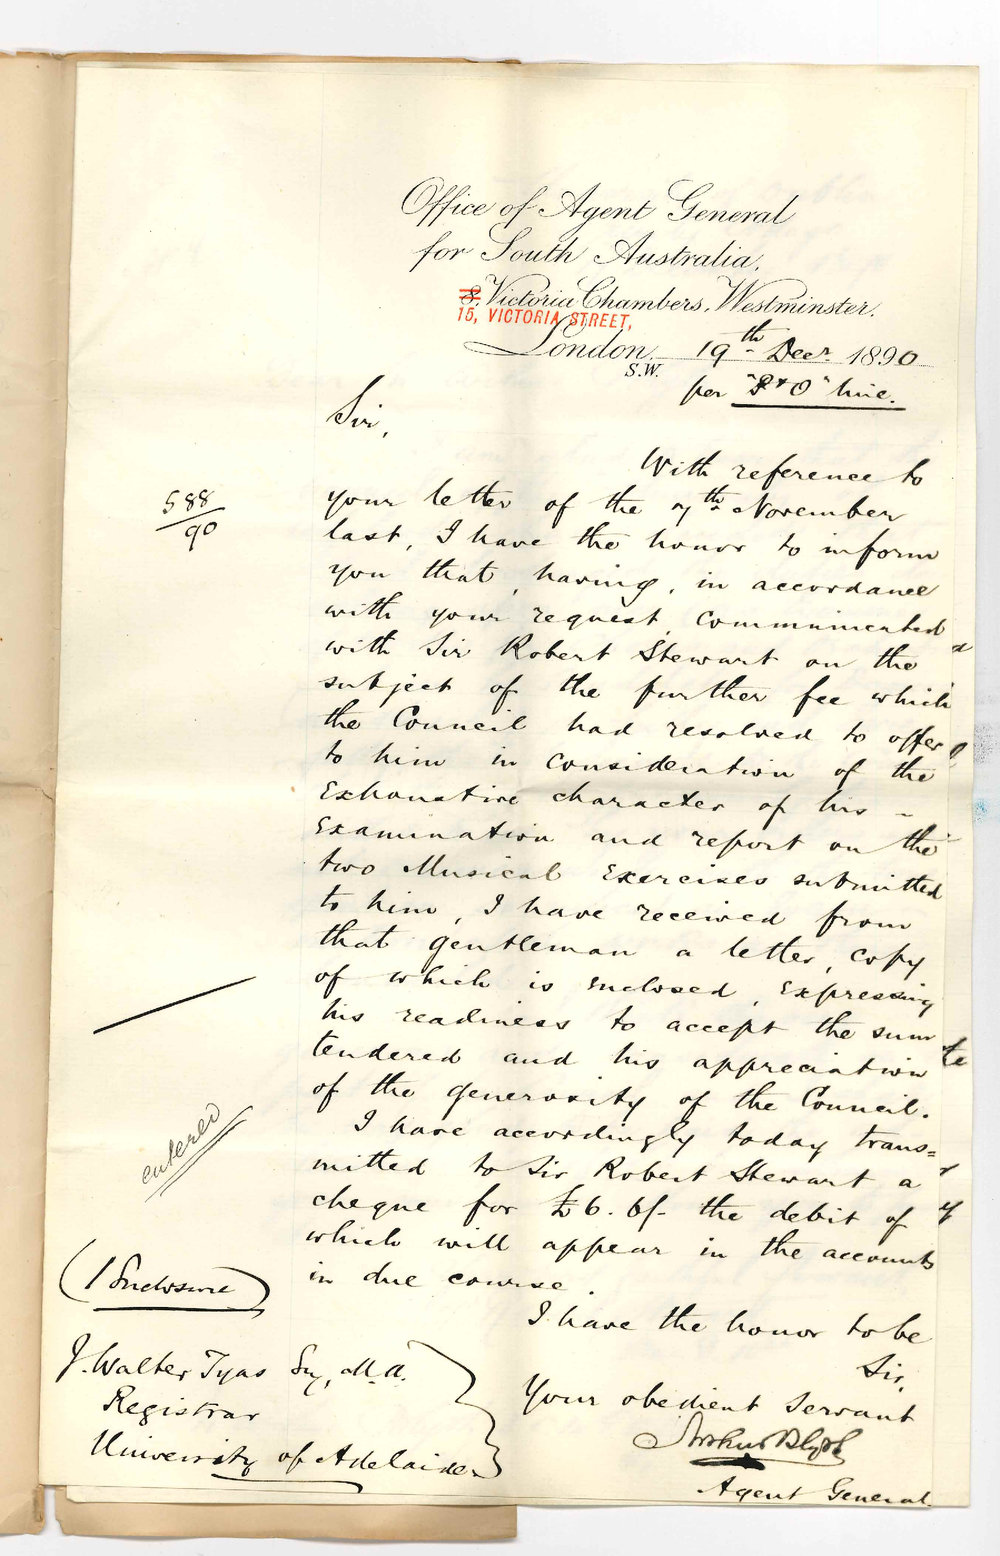 Office of Agent General
for South Australia.
8, Victoria Chambers, Westminster.
15, VICTORIA STREET,
London 19th Decr. 1890
S.W.
per "P & O" line.
Sir,
With reference to
588/90
your letter of the 7th November
last, I have the honor to inform
you that, having, in accordance
with your request, communicated
with Sir Robert Stewart on the
subject of the further fee which
the Council had resolved to offer
to him in consideration of the
Exhaustive character of his -
Examination and report on the
two Musical Exercises submitted
to him, I have received from
that gentleman a letter, copy
of which is enclosed, expressing
his readiness to accept the sum
tendered and his appreciation
of the generosity of the Council.
I have accordingly today trans=
mitted to Sir Robert Stewart a
cheque for £6.6/- the debit of
which will appear in the accounts
in due course.
entered
(1 Enclosure)
I have the honor to be
Sir,
Your obedient Servant
Arthur Blyth
Agent General.
J. Walter Tyas Esq, M.A.
Registrar
University of Adelaide